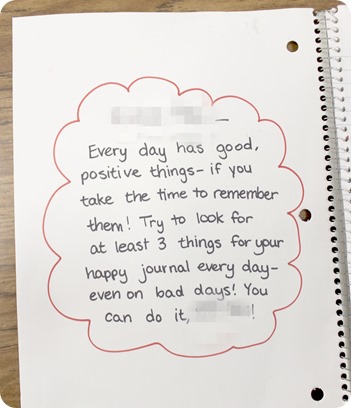 Every day has good,
positive things- if you
take the time to remember
them! Try to look for
at least 3 things for your
happy journal every day-
even on bad days! You
can do it, !